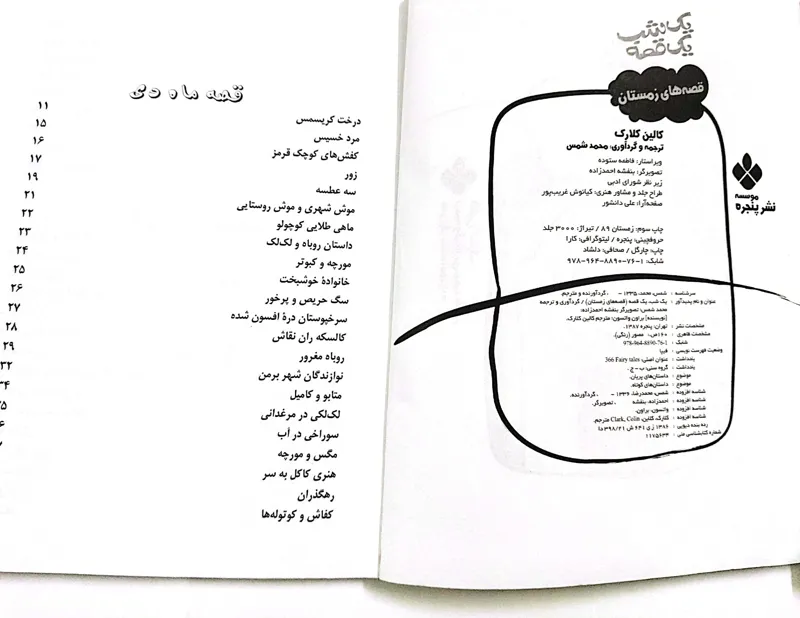 یک شب
یک قصه
قصه‌های زمستان
کالین کلارک
ترجمه و گردآوری: محمد شمس
ویراستار: فاطمه ستوده
تصویرگر: بنفشه احمدزاده
زیر نظر شورای ادبی
طراح جلد و مشاور هنری: کیانوش غریب‌پور
صفحه‌آرا: علی دانشور
موسسه
نشر پنجره
چاپ سوم: زمستان ۸۹ / تیراژ: ۳۰۰۰ جلد
حروفچینی: پنجره / لیتوگرافی: کارا
چاپ: چارگل / صحافی: دلشاد
شابک: ۱-۷۶-۸۸۹۰-۹۶۴-۹۷۸
سرشناسه : شمس، محمد، ۱۳۳۵ - ، گردآورنده و مترجم.
عنوان و نام پدیدآور : یک شب، یک قصه (قصه‌های زمستان) / گردآوری و ترجمه
محمد شمس؛ تصویرگر بنفشه احمدزاده؛
[نویسنده] براون واتسون؛ مترجم کالین کلارک.
مشخصات نشر : تهران: پنجره، ۱۳۸۷.
مشخصات ظاهری : ۱۶۰ص.، مصور (رنگی).
شابک : 978-964-8890-76-1
وضعیت فهرست نویسی : فیپا
یادداشت : عنوان اصلی: 366 Fairy tales
یادداشت : گروه سنی: ب - ج.
موضوع : داستان‌های پریان.
موضوع : داستان‌های کوتاه.
شناسه افزوده : شمس، محمدرضا، ۱۳۳۶ - ، گردآورنده.
شناسه افزوده : احمدزاده، بنفشه ، تصویرگر.
شناسه افزوده : واتسون، براون.
شناسه افزوده : کلارک، کلاین، Clark, Colin، مترجم.
رده بندی دیویی : ۱۳۸۶ ز ی ۶۴۱ ش ۳۹۸/۲۱ دا
شماره کتابشناسی ملی : ۱۱۷۵۶۳۴
قصه ماه دی
درخت کریسمس ۱۱
مرد خسیس ۱۵
کفش‌های کوچک قرمز ۱۶
زور ۱۷
سه عطسه ۱۹
موش شهری و موش روستایی ۲۱
ماهی طلایی کوچولو ۲۲
داستان روباه و لک‌لک ۲۳
مورچه و کبوتر ۲۴
خانوادهٔ خوشبخت ۲۵
سگ حریص و پرخور ۲۶
سرخپوستان درهٔ افسون شده ۲۷
کالسکه ران نقاش ۲۸
روباه مغرور ۲۹
نوازندگان شهر برمن ۳۲
متابو و کامیل ۳۴
لک‌لکی در مرغدانی
سوراخی در آب
مگس و مورچه
هنری کاکل به سر
رهگذران
کفاش و کوتوله‌ها